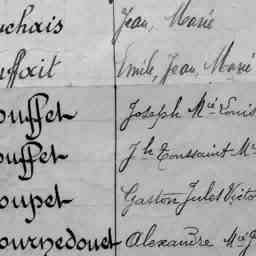 uchais Jean, Marie
uffait Emile, Jean, Marie
ouffet Joseph Mie Louis
ouffet Jh Toussaint Me
oupet Gaston Jules Victo
ournedouet Alexandre Mie J